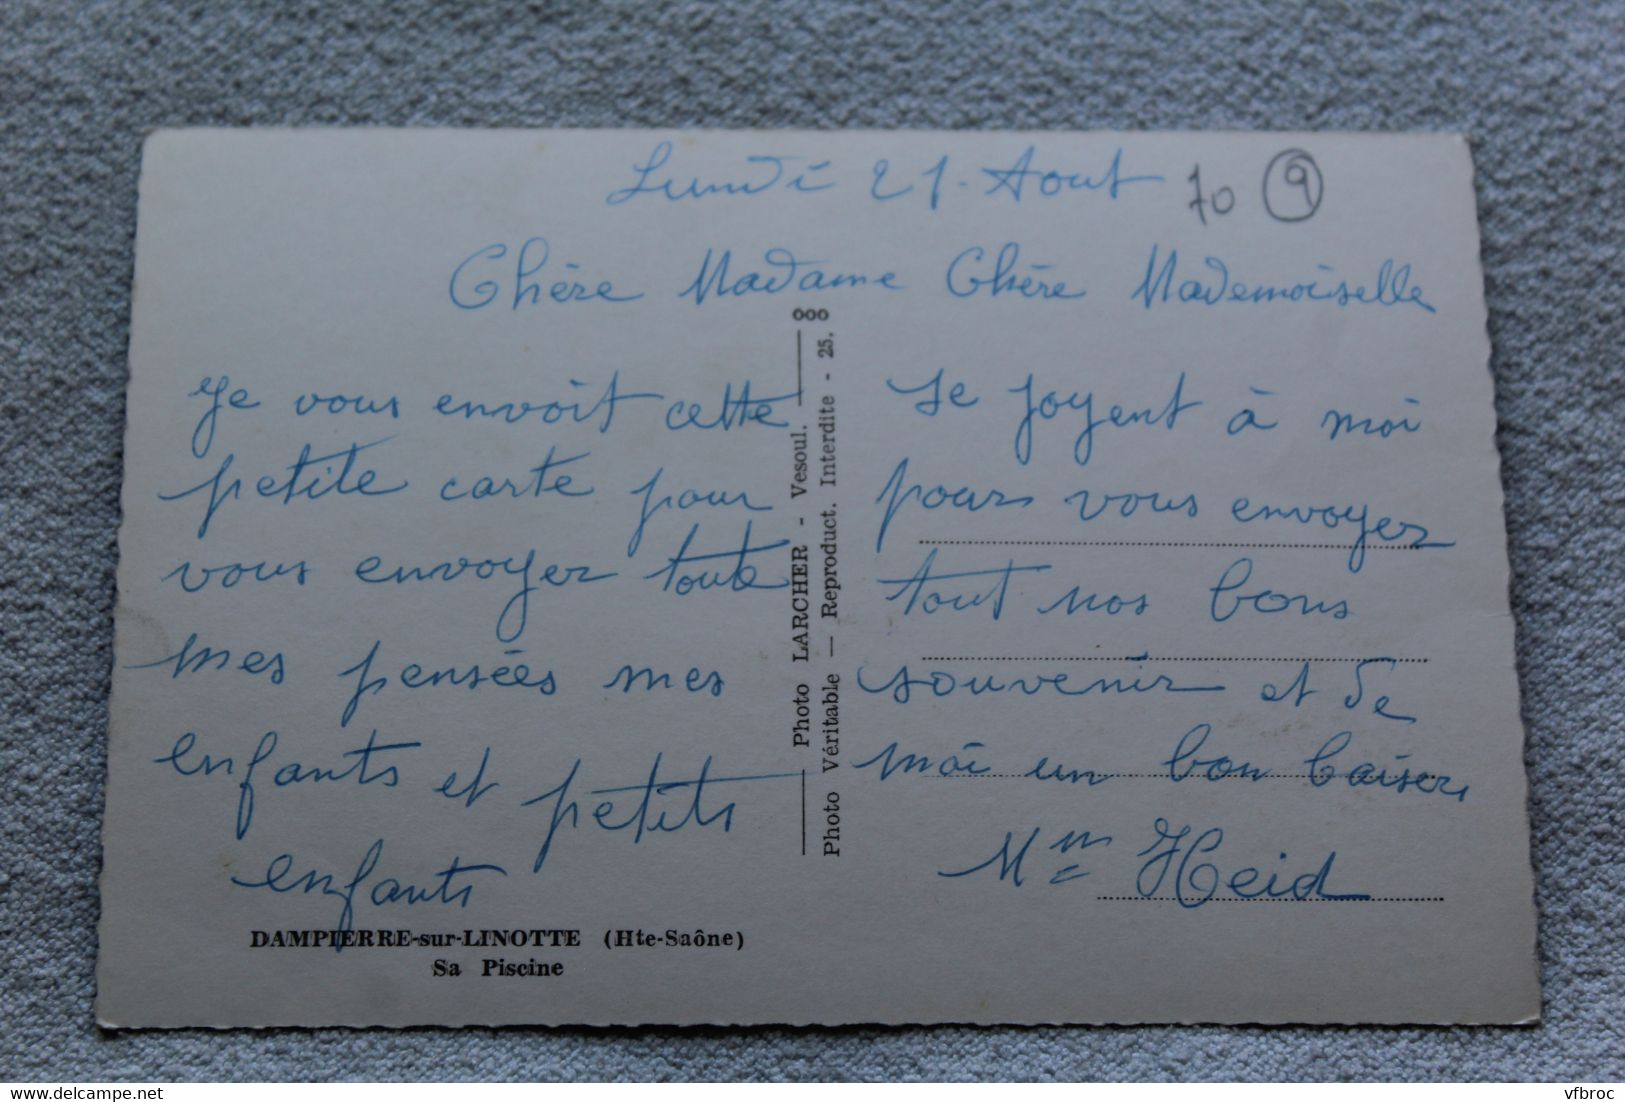 Lundi 21. Aout
70 9
Chère Madame Chère Mademoiselle
Je vous envoit cette
petite carte pour
vous envoyer toute
mes pensées mes
enfants et petits
enfants
se joyent à moi
pour vous envoyer
tout nos bons
souvenir et de
moi un bon baiser
Mme Heid
ooo
Photo LARCHER - Vesoul.
Photo Véritable — Reproduct. Interdite - 25.
DAMPIERRE-sur-LINOTTE (Hte-Saône)
Sa Piscine
https://www.delcampe.net
vfbroc